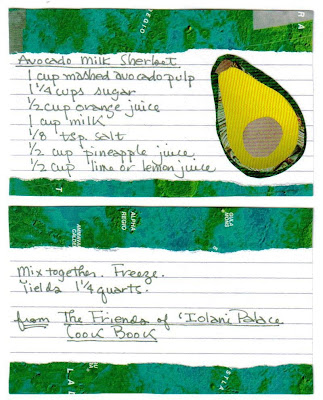 REGIO
R A
Avocado Milk Sherbet
1 cup mashed avocado pulp
1 1/4 cups sugar
1/2 cup orange juice
1 cup milk
1/8 tsp. salt
1/2 cup pineapple juice
1/2 cup lime or lemon juice
T
ALPHA
REGIO
Mix together. Freeze.
Yields 1 1/4 quarts.
from The Friends of 'Iolani Palace
Cook Book
L A D